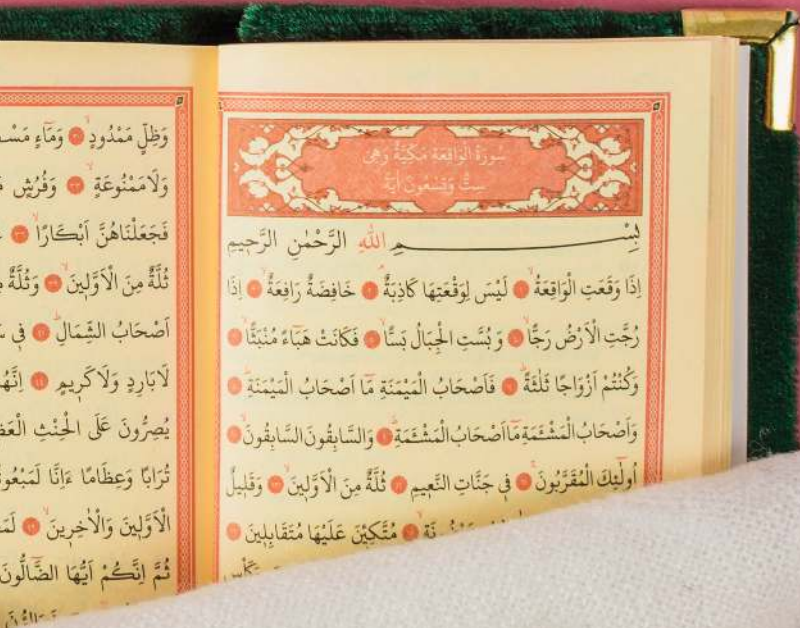 سُورَةُ الْوَاقِعَةِ مَكِّيَّةٌ وَهِيَ
سِتٌّ وَتِسْعُونَ اٰيَةً
بِسْمِ اللّٰهِ الرَّحْمٰنِ الرَّحٖيمِ
اِذَا وَقَعَتِ الْوَاقِعَةُۙ لَيْسَ لِوَقْعَتِهَا كَاذِبَةٌۘ خَافِضَةٌ رَافِعَةٌۙ اِذَا
رُجَّتِ الْاَرْضُ رَجًّاۙ وَبُسَّتِ الْجِبَالُ بَسًّاۙ فَكَانَتْ هَبَٓاءً مُنْبَثًّاۙ
وَكُنْتُمْ اَزْوَاجًا ثَلٰثَةًؕ فَاَصْحَابُ الْمَيْمَنَةِ مَٓا اَصْحَابُ الْمَيْمَنَةِؕ
وَاَصْحَابُ الْمَشْـَٔمَةِ مَٓا اَصْحَابُ الْمَشْـَٔمَةِؕ وَالسَّابِقُونَ السَّابِقُونَۙ
اُولٰٓئِكَ الْمُقَرَّبُونَۚ فٖي جَنَّاتِ النَّعٖيمِ ثُلَّةٌ مِنَ الْاَوَّلٖينَۙ وَقَلٖيلٌ
مُتَّكِـٖٔينَ عَلَيْهَا مُتَقَابِلٖينَ
وَظِلٍّ مَمْدُودٍۙ وَمَٓاءٍ
وَلَا مَمْنُوعَةٍۙ وَفُرُشٍ
فَجَعَلْنَاهُنَّ اَبْكَارًاۙ
ثُلَّةٌ مِنَ الْاَوَّلٖينَۙ وَثُلَّةٌ
اَصْحَابُ الشِّمَالِؕ فٖي
لَا بَارِدٍ وَلَا كَرٖيمٍ اِنَّهُمْ
يُصِرُّونَ عَلَى الْحِنْثِ
تُرَابًا وَعِظَامًا ءَاِنَّا
الْاَوَّلٖينَ وَالْاٰخِرٖينَۙ
ثُمَّ اِنَّكُمْ اَيُّهَا الضَّٓالُّونَ